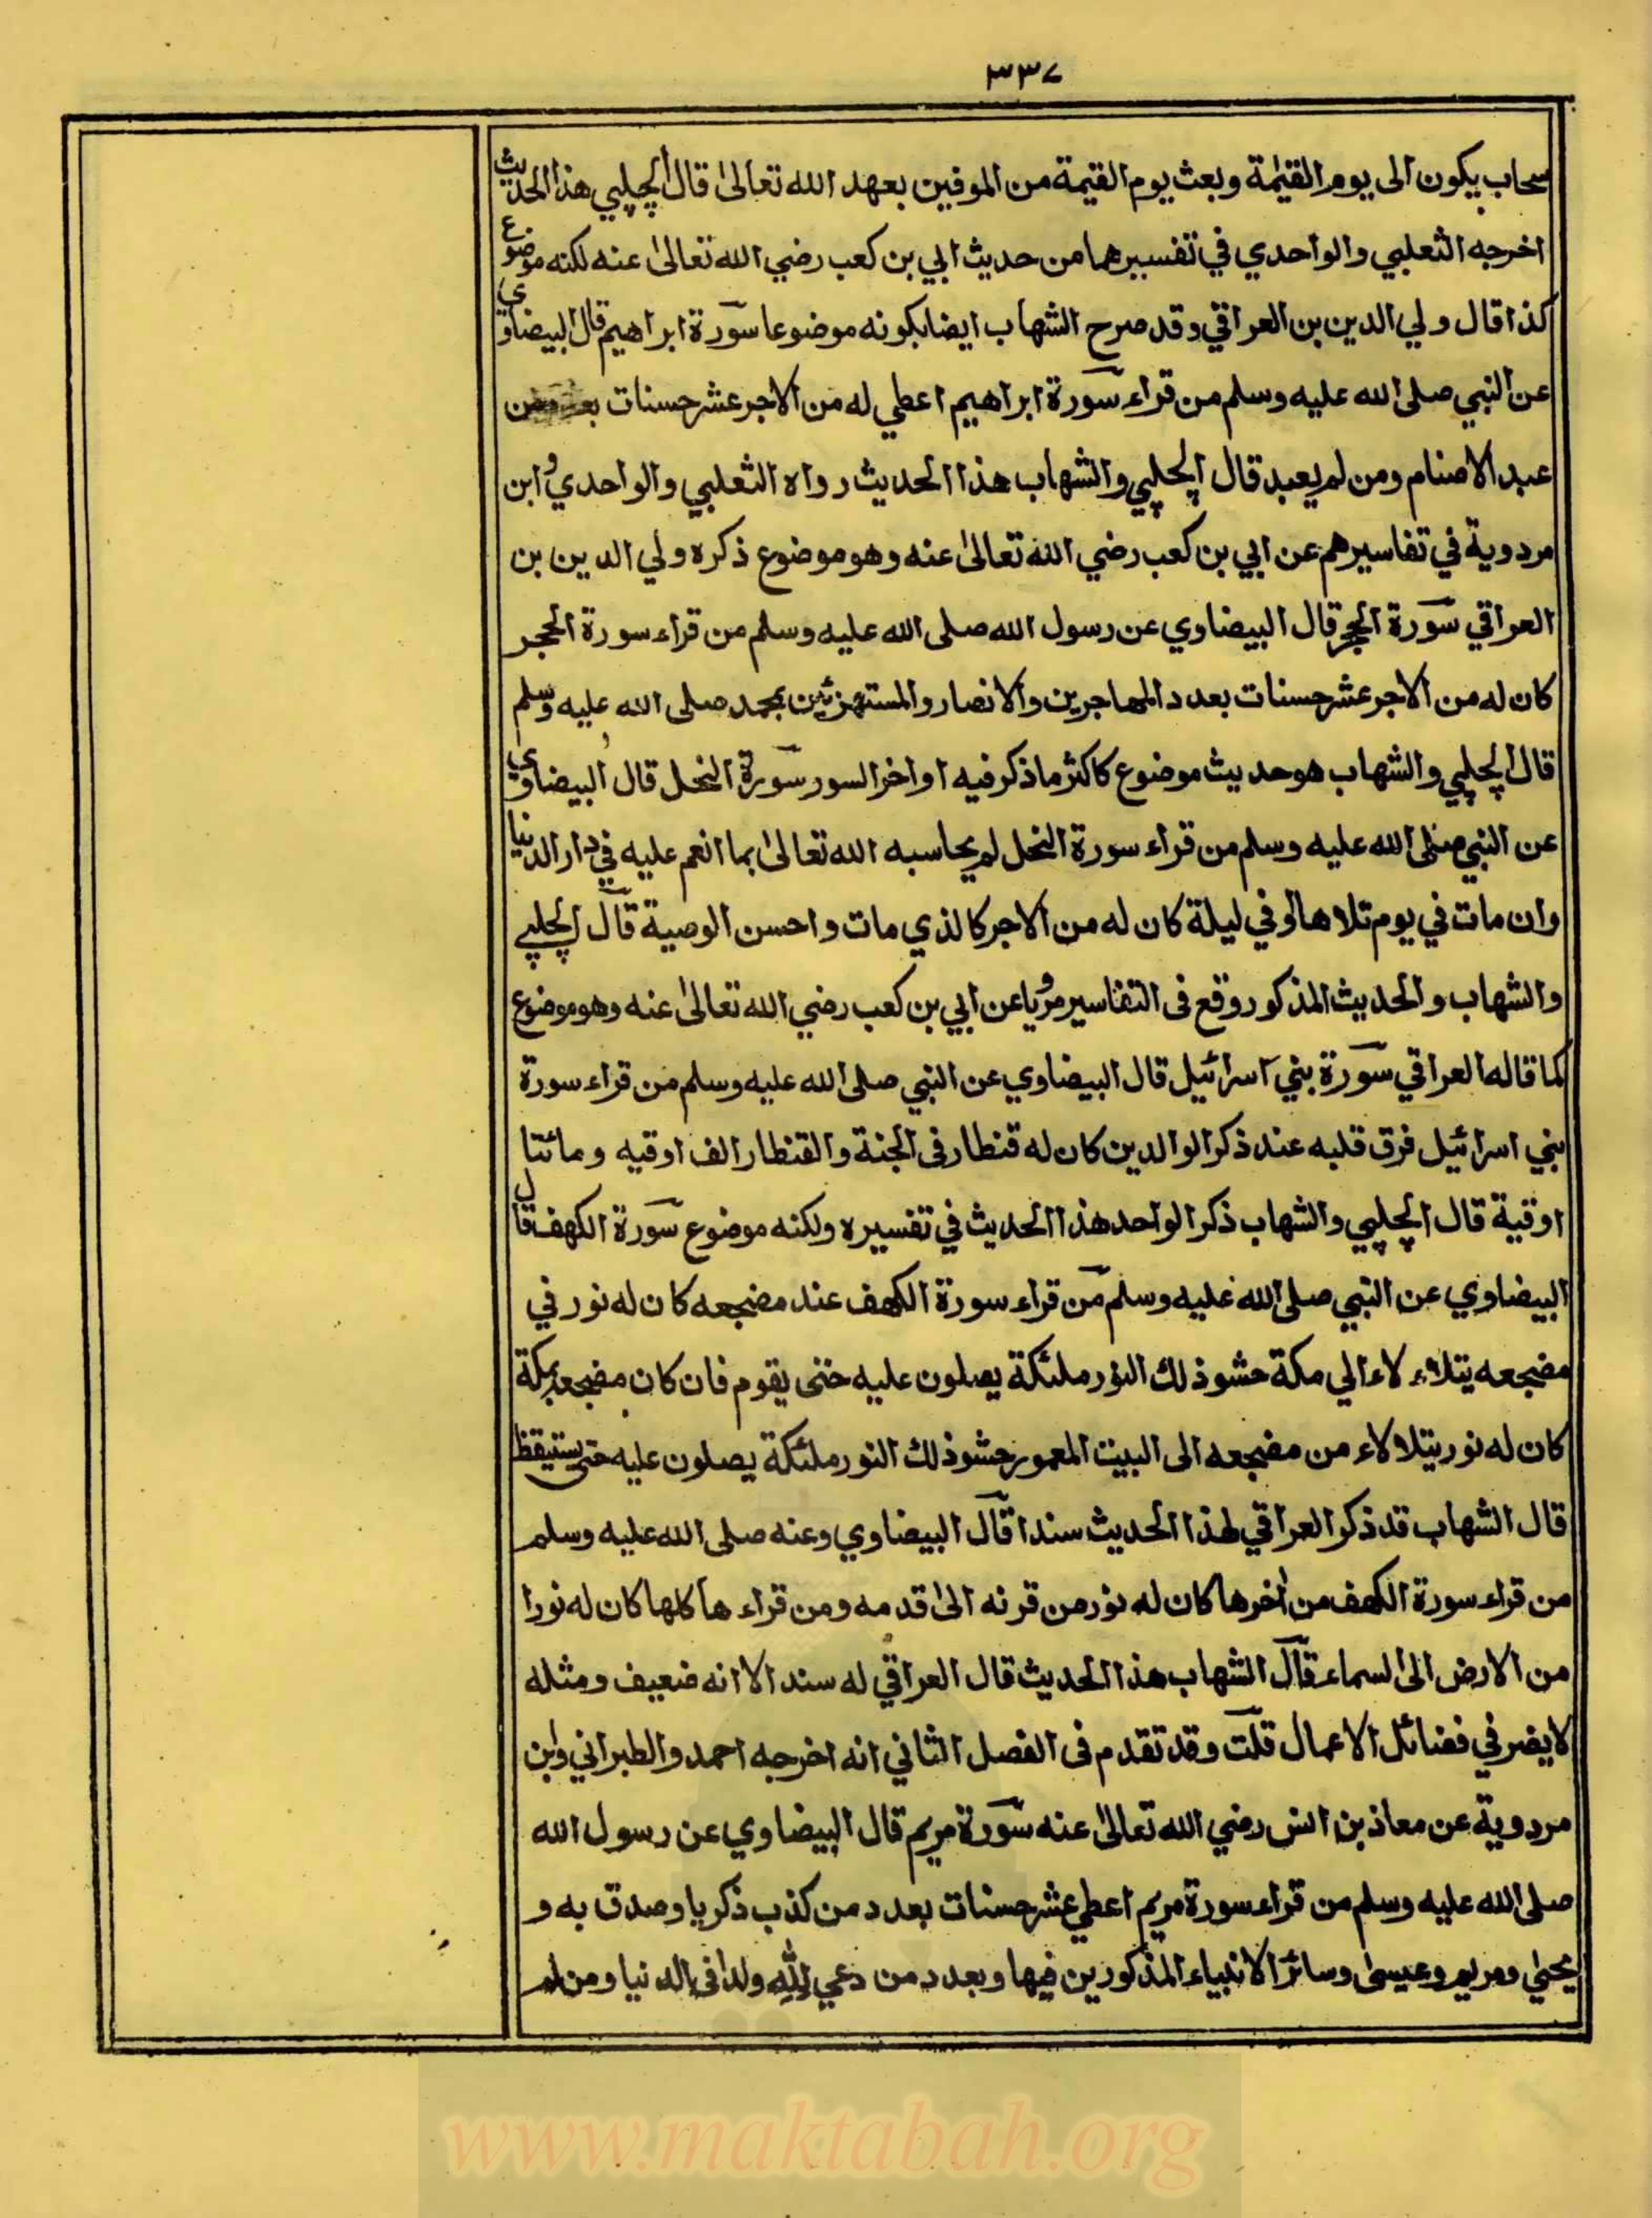 ٣٣٧
سحاب يكون الى يوم القيٰمة وبعث يوم القيٰمة من الموفين بعهد الله تعالىٰ قال الچلپي هذا الحديث
اخرجه الثعلبي والواحدي في تفسيرهما من حديث ابي بن كعب رضي الله تعالىٰ عنه لكنه موضوع
كذا قال ولي الدين بن العراقي وقد صرح الشهاب ايضا بكونه موضوعا سورة ابراهيم قال البيضاوي
عن النبي صلى الله عليه وسلم من قراء سورة ابراهيم اعطي له من الاجر عشر حسنات بعدد من
عبد الاصنام ومن لم يعبد قال الچلپي والشهاب هذا الحديث رواه الثعلبي والواحدي وابن
مردوية في تفاسيرهم عن ابي بن كعب رضي الله تعالىٰ عنه وهو موضوع ذكره ولي الدين بن
العراقي سورة الحجر قال البيضاوي عن رسول الله صلى الله عليه وسلم من قراء سورة الحجر
كان له من الاجر عشر حسنات بعدد المهاجرين والانصار والمستهزئين بمحمد صلى الله عليه وسلم
قال الچلپي والشهاب هو حديث موضوع كاكثر ما ذكر فيه اواخر السور سورة النحل قال البيضاوي
عن النبي صلى الله عليه وسلم من قراء سورة النحل لم يحاسبه الله تعالىٰ بما انعم عليه في دار الدنيا
وان مات في يوم تلاها او في ليلة كان له من الاجر كالذي مات واحسن الوصية قال الچلپي
والشهاب والحديث المذكور وقع فى التفاسير مرويا عن ابي بن كعب رضي الله تعالىٰ عنه وهو موضوع
كما قاله العراقي سورة بني اسرائيل قال البيضاوي عن النبي صلى الله عليه وسلم من قراء سورة
بني اسرائيل فرق قلبه عند ذكر الوالدين كان له قنطار فى الجنة والقنطار الف اوقيه ومائتا
اوقية قال الچلپي والشهاب ذكر الواحد هذا الحديث في تفسيره ولكنه موضوع سورة الكهف قال
البيضاوي عن النبي صلى الله عليه وسلم من قراء سورة الكهف عند مضجعه كان له نور في
مضجعه يتلاء لاء الي مكة حشو ذلك النور ملئكة يصلون عليه حتى يقوم فان كان مضجعه بمكة
كان له نور يتلالاء من مضجعه الى البيت المعمور حشو ذلك النور ملئكة يصلون عليه حتى يستيقظ
قال الشهاب قد ذكر العراقي لهذا الحديث سندا قال البيضاوي وعنه صلى الله عليه وسلم
من قراء سورة الكهف من اٰخرها كان له نور من قرنه الىٰ قدمه ومن قراء ها كلها كان له نورا
من الارض الىٰ السماء قال الشهاب هذا الحديث قال العراقي له سند الا انه ضعيف ومثله
لا يضر في فضائل الاعمال قلت وقد تقدم فى الفصل الثاني انه اخرجه احمد والطبراني وابن
مردوية عن معاذ بن انس رضي الله تعالىٰ عنه سورة مريم قال البيضاوي عن رسول الله
صلى الله عليه وسلم من قراء سورة مريم اعطي عشر حسنات بعدد من كذب ذكريا وصدق به و
يحيىٰ ومريم وعيسىٰ وسائر الانبياء المذكورين فيها وبعدد من دعي لله ولدا فى الدنيا ومن لم
www.maktabah.org